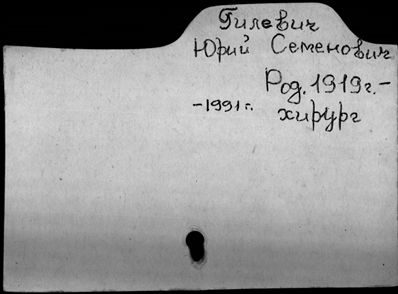 Гилевич
Юрий Семенович
Род. 1919г.-
-1991г. хирург